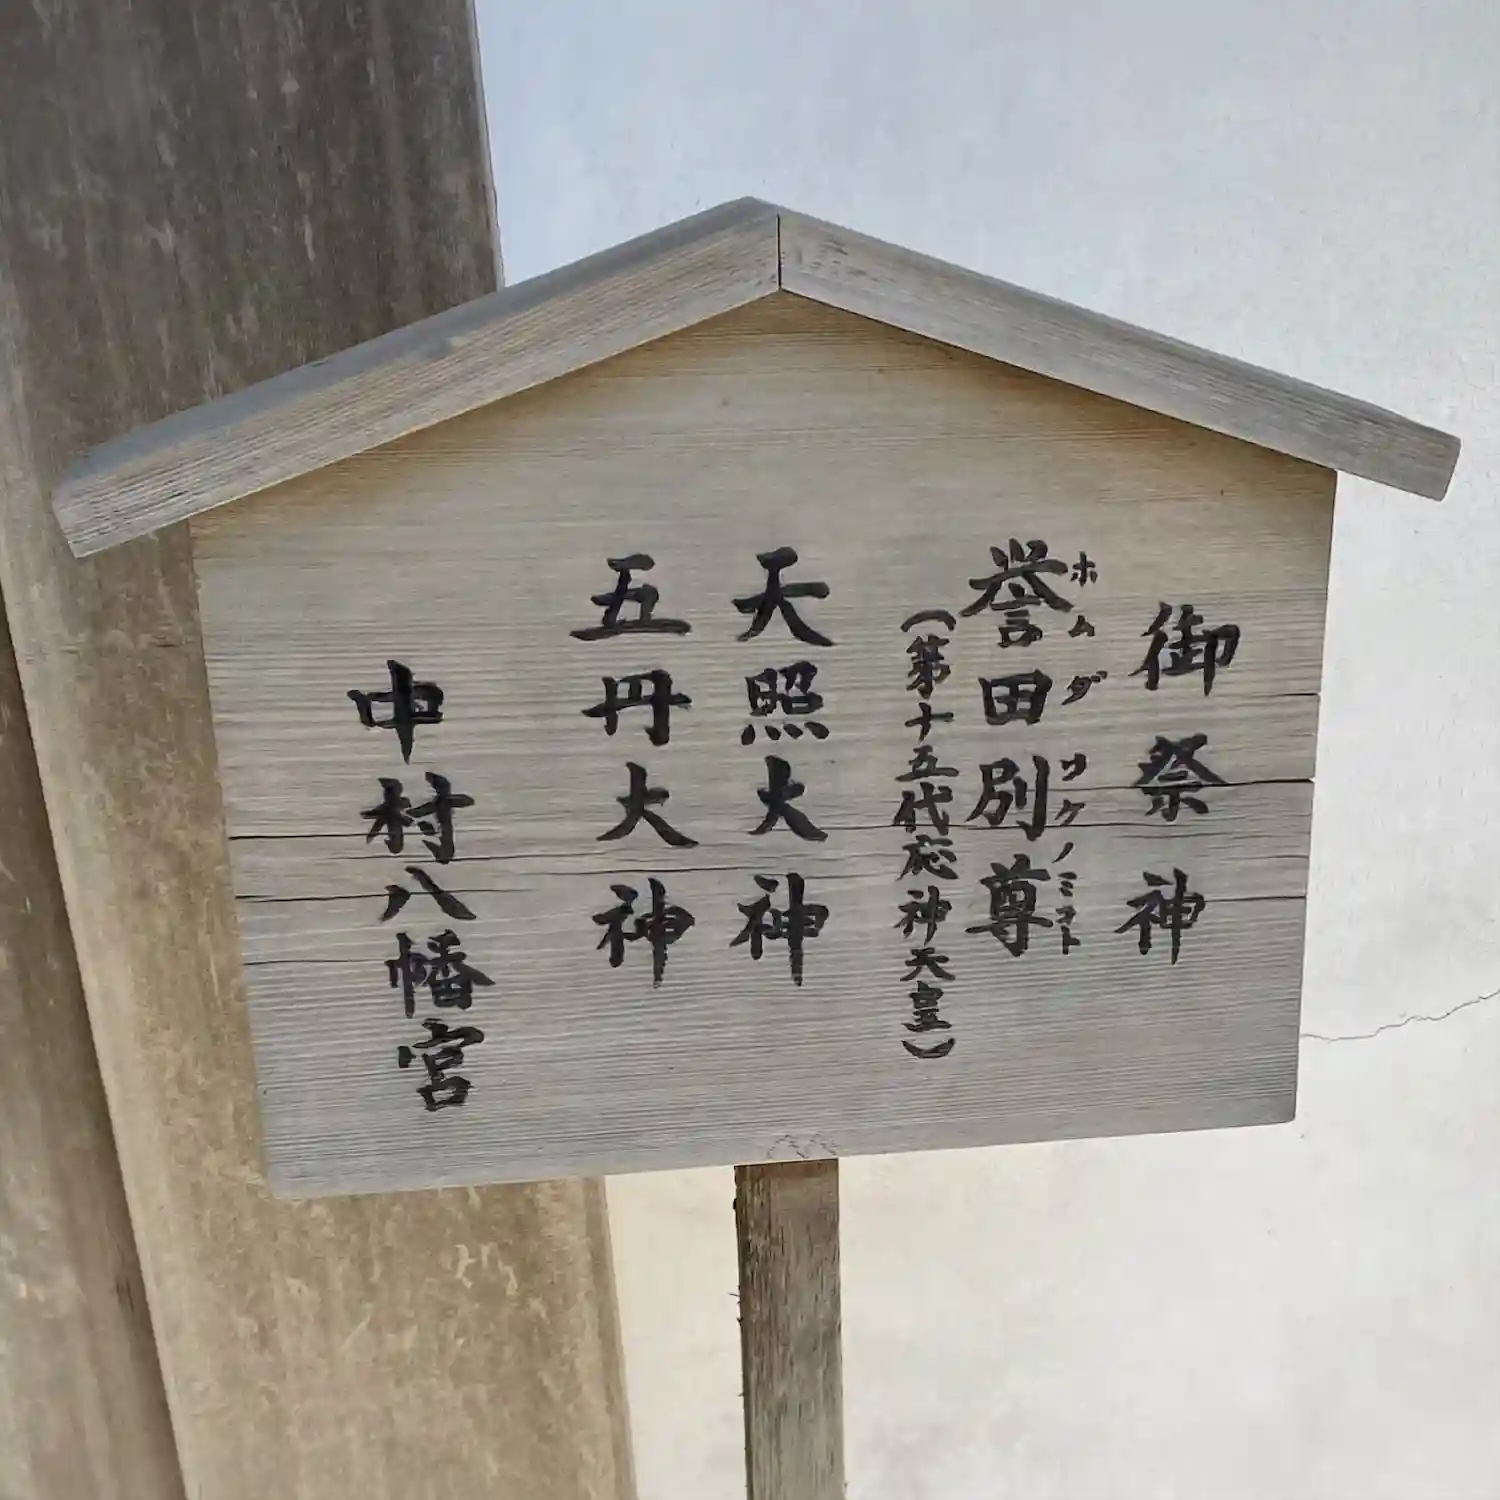 御祭神
誉田別尊
ホムダワケノミコト
(第十五代応神天皇)
天照大神
五丹大神
中村八幡宮